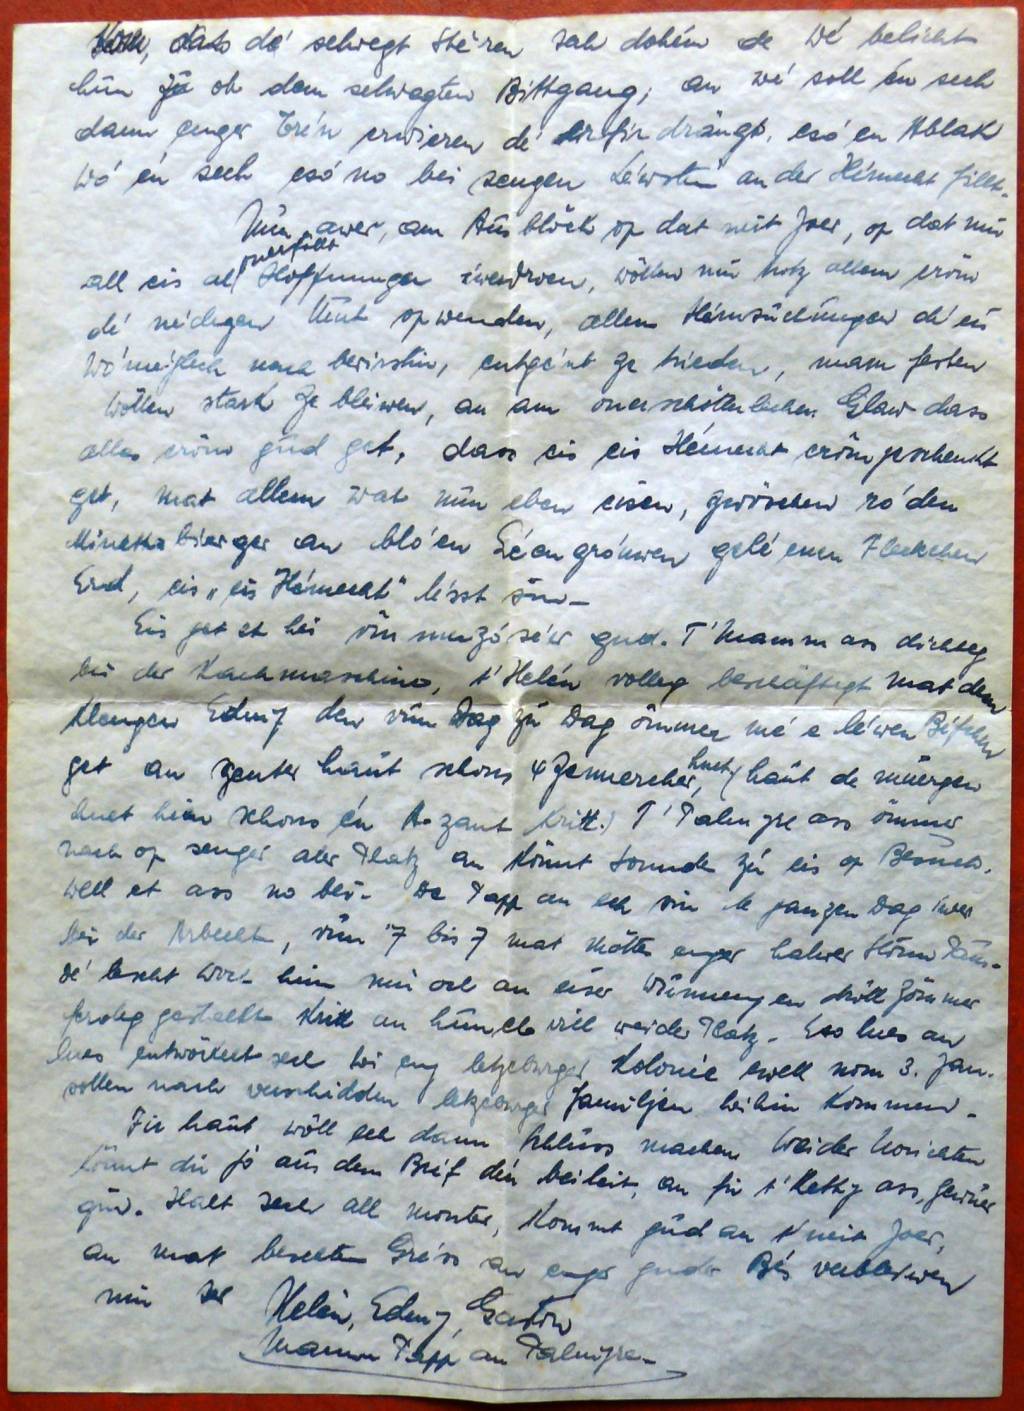 dats dé selwegt Stéren sech dohém de Wé belicht
hun fir och dem selwegten Bittgang; an wé soll én sech
dann enger Tréin erwieren dé erfir drängt, esó en Ablack
wó én sech esó no bei sengen Léiwsten an der Hémecht fillt.
Nun awer, am Ausbléck op dat neit Joer, op dat mir
all eis al onerfëllt Hoffnungen iwerdroen, wöllen mir trotz allem eröm
dé néidegen Mut opwenden, allem Hémsuchungen dé eis
wóméiglech nach bevirstin, entgént ze trieden, mam festen
Wöllen stark ze bleiwen, an am onerschötterlechen Glaw dass
alles eröm gud get, dass eis eis Hémecht eröm geschenckt
get, mat allem wat nun eben eisen, zwöschen róden
Minettsbierger an blóen Léengrouwen gelé enen Fleckchen
Erd, eis „eis Hémecht" lésst sin –
Eis get et hei vun muzó séier gud. T'Mamm ass dichteg
bei der Kachmaschin, t'Helén volleg beschäftegt mat dem
klengen Edmy den vun Dag zu Dag ömmer mé e léiwen Béfchen
get an zenter haut schons 4 Zennercher huet (haut de muergen
huet hien schons én A-zant kritt.) T' Palmyre ass ömmer
nach op senger aler Platz an könnt Sonndes zu eis op Besuch.
well et ass no bei. De Papp an ech sin de ganzen Dag iwer
bei der Arbecht, vun 7 bis 7 mat Möttes enger halwer Stonn Paus.
Dé lescht Woch hun mir och an eiser Wunneng en drött Zömmer
ferdeg gestallt kritt an hun elo vill weider Platz. Eso lues an
lues entwöckelt sech hei eng letzeburger Kolonie well vom 3. Jan.
sollen nach verschidden letzeburger Familjen heihin kommen –
Fir haut wöll ech dann Schluss machen. Weider Norichten
könnt dir jó aus dem Bréf dén beileit, an fir t' Kethy ass, gewuer
gin. Halt iech all monter, kommt gud an t'neit Joer,
an mat beschten Gréiss an enger gudder Bés verbleiwen
mir Ier Helén, Edmy, Gaston
Mamm Papp an Palmyre –